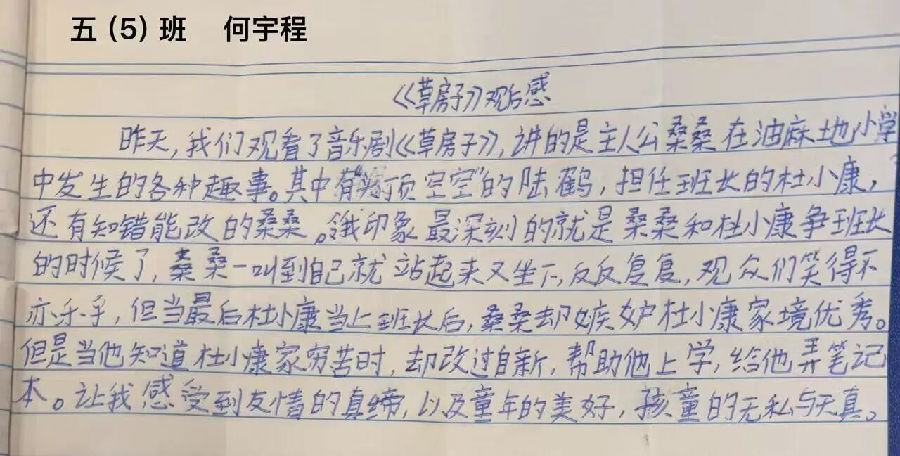 五（5）班 何宇程
《草房子》观后感
昨天,我们观看了音乐剧《草房子》,讲的是主人公桑桑在油麻地小学
中发生的各种趣事。其中有“头顶空空”的陆鹤,担任班长的杜小康,
还有知错能改的桑桑。我印象最深刻的就是桑桑和杜小康争班长
的时候了,桑桑一叫到自己就站起来又坐下,反反复复,观众们笑得不
亦乐乎,但当最后杜小康当上班长后,桑桑却嫉妒杜小康家境优秀。
但是当他知道杜小康家穷苦时,却改过自新,帮助他上学,给他弄笔记
本。让我感受到友情的真缔,以及童年的美好,孩童的无私与天真。